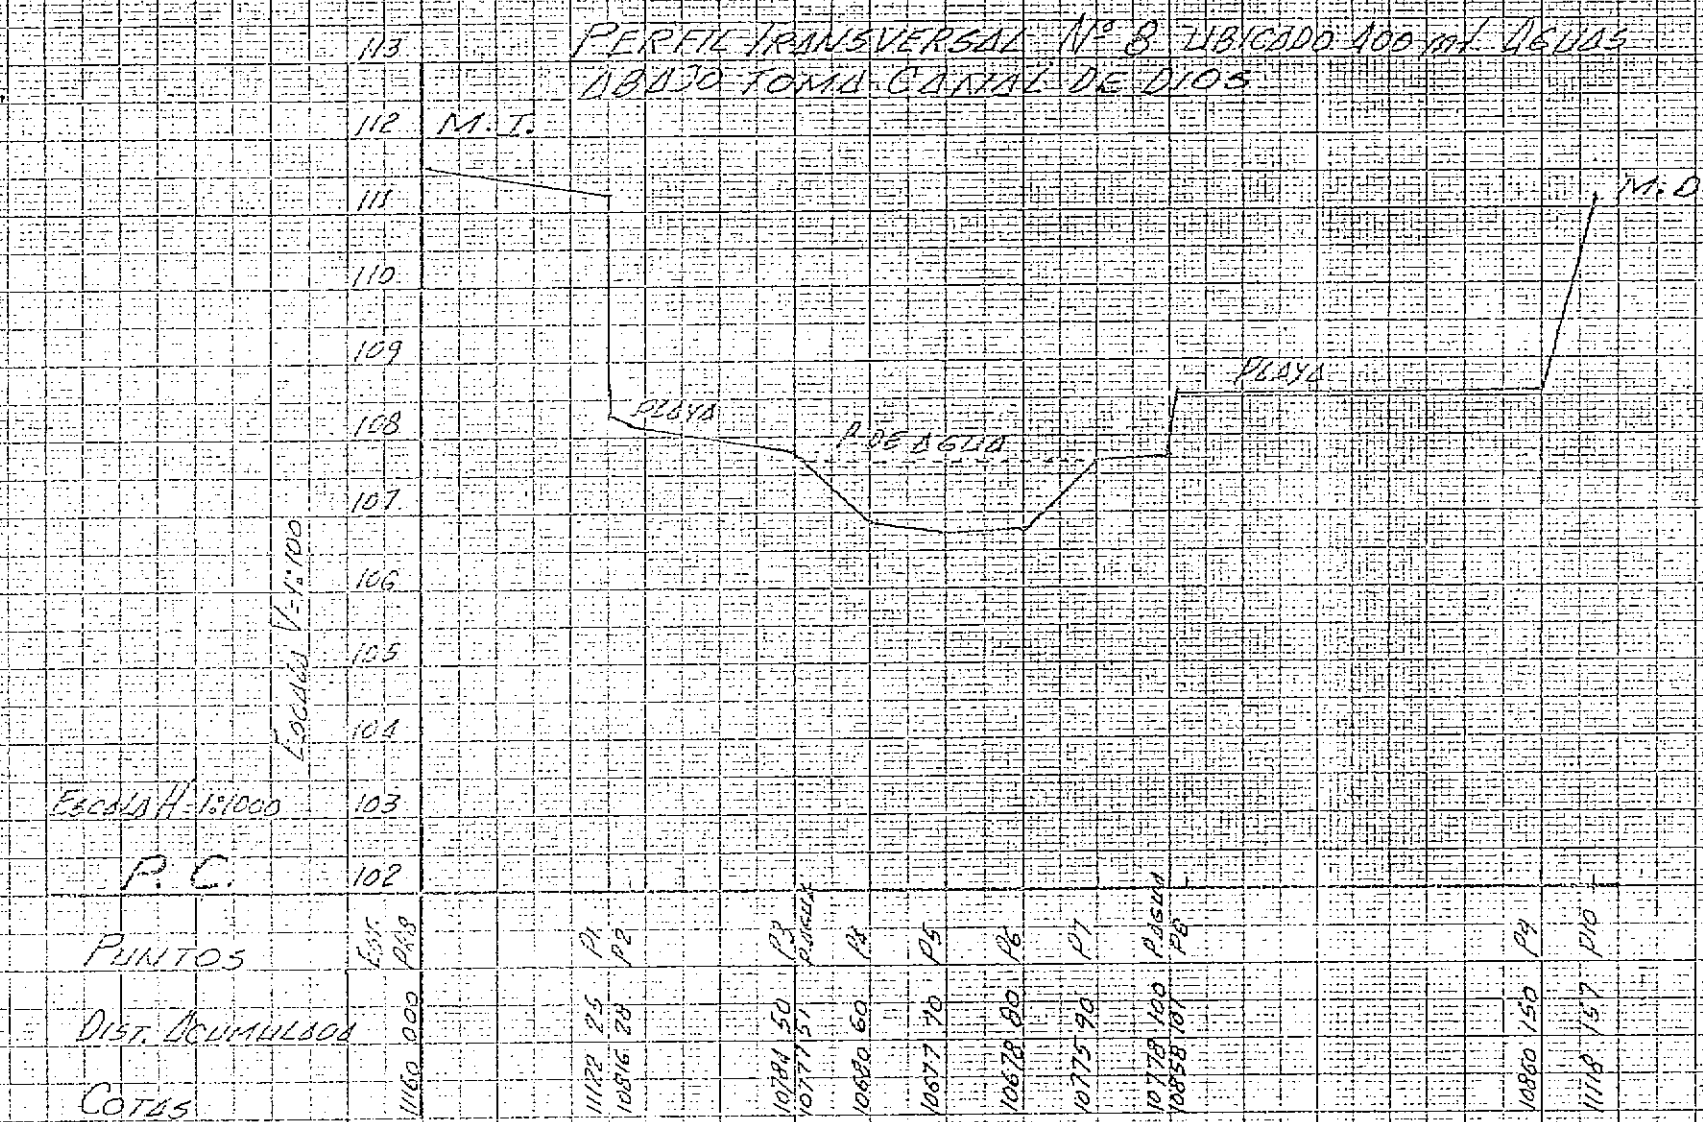 PERFIL TRANSVERSAL Nº 8 UBICADO 400 mt AGUAS
ABAJO TOMA CANAL DE DIOS
113
112
M.I.
111
M.D
110
109
PLAYA
108
PLAYA
P. DE AGUA
107
106
105
104
ESCALA V=1:100
ESCALA H=1:1000
103
P.C.
102
PUNTOS
EST. P1 P2 P3 P.AGUA P4 P5 P6 P7 P.AGUA P8 P9 P10
DIST. ACUMULADA
000 25 28 50 51 60 70 80 90 100 101 150 157
COTAS
11160 11122 10816 10784 10777 10680 10677 10678 10775 10778 10858 10860 11118